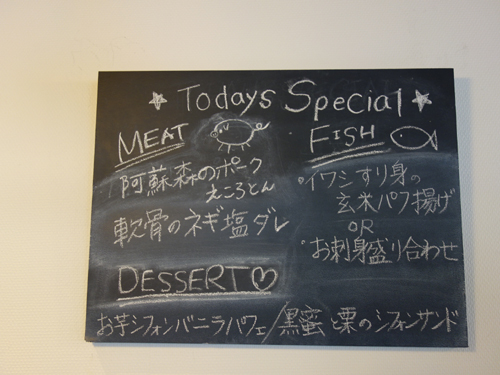 ☆ Todays Special ☆
MEAT
阿蘇森のポーク
えころとん
軟骨のネギ塩ダレ
FISH
・イワシすり身の
玄米パフ揚げ
OR
・お刺身盛り合わせ
DESSERT♡
お芋シフォンバニラパフェ/黒蜜と栗のシフォンサンド